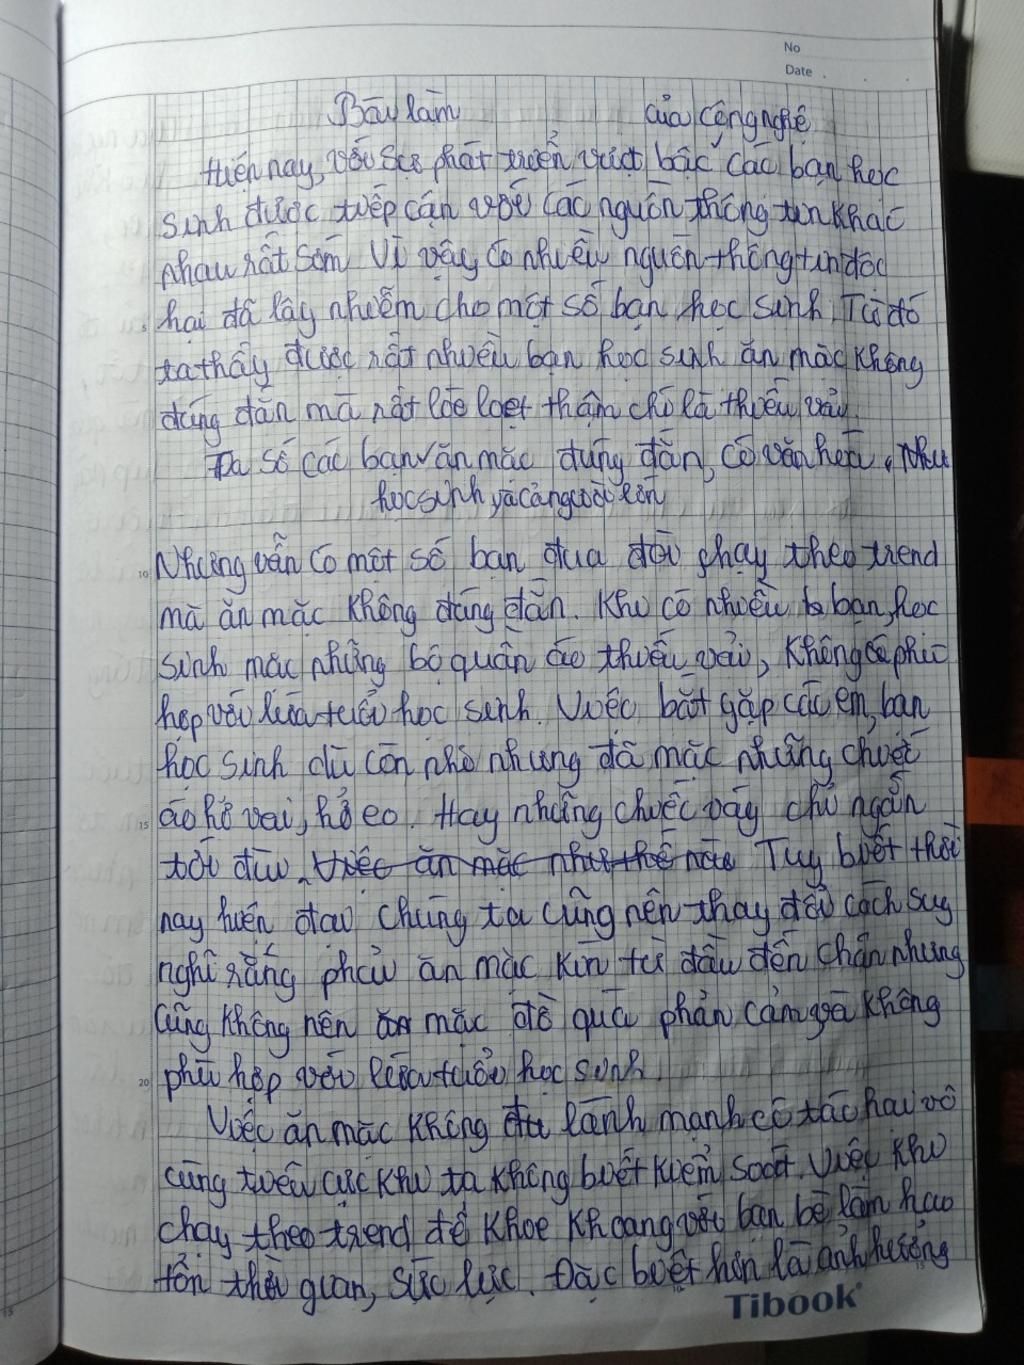 No
Date
Bài làm
của công nghệ
Hiện nay, với sự phát triển vượt bậc các bạn học
sinh được tiếp cận với các nguồn thông tin khác
nhau rất sớm Vì vậy có nhiều nguồn thông tin độc
5 hại đã lây nhiễm cho một số bạn học sinh. Từ đó
ta thấy được rất nhiều bạn học sinh ăn mặc không
đúng đắn mà rất loè loẹt thậm chí là thiếu vải.
Đa số các bạn ăn mặc đúng đắn, có văn hoá, Như
học sinh và cả người lớn
10 Nhưng vẫn có một số bạn đua đòi chạy theo trend
mà ăn mặc không đúng đắn. Khi có nhiều bạn học
sinh mặc những bộ quần áo thiếu vải, không phù
hợp với lứa tuổi học sinh. Việc bắt gặp các em, bạn
học sinh dù còn nhỏ nhưng đã mặc những chiếc
15 áo hở vai, hở eo. Hay những chiếc váy chỉ ngắn
tới đùi. Việc ăn mặc như thế nào Tuy biết thời
nay hiện đại chúng ta cũng nên thay đổi cách suy
nghĩ rằng phải ăn mặc kín từ đầu đến chân nhưng
cũng không nên mặc đồ quá phản cảm và không
20 phù hợp với lứa tuổi học sinh.
Việc ăn mặc không lành mạnh có tác hại vô
cùng tiêu cực khi ta không biết kiểm soát. Việc khi
chạy theo trend để khoe khoang với bạn bè làm hao
tổn thời gian, sức lực. Đặc biệt hơn là ảnh hưởng
Tibook